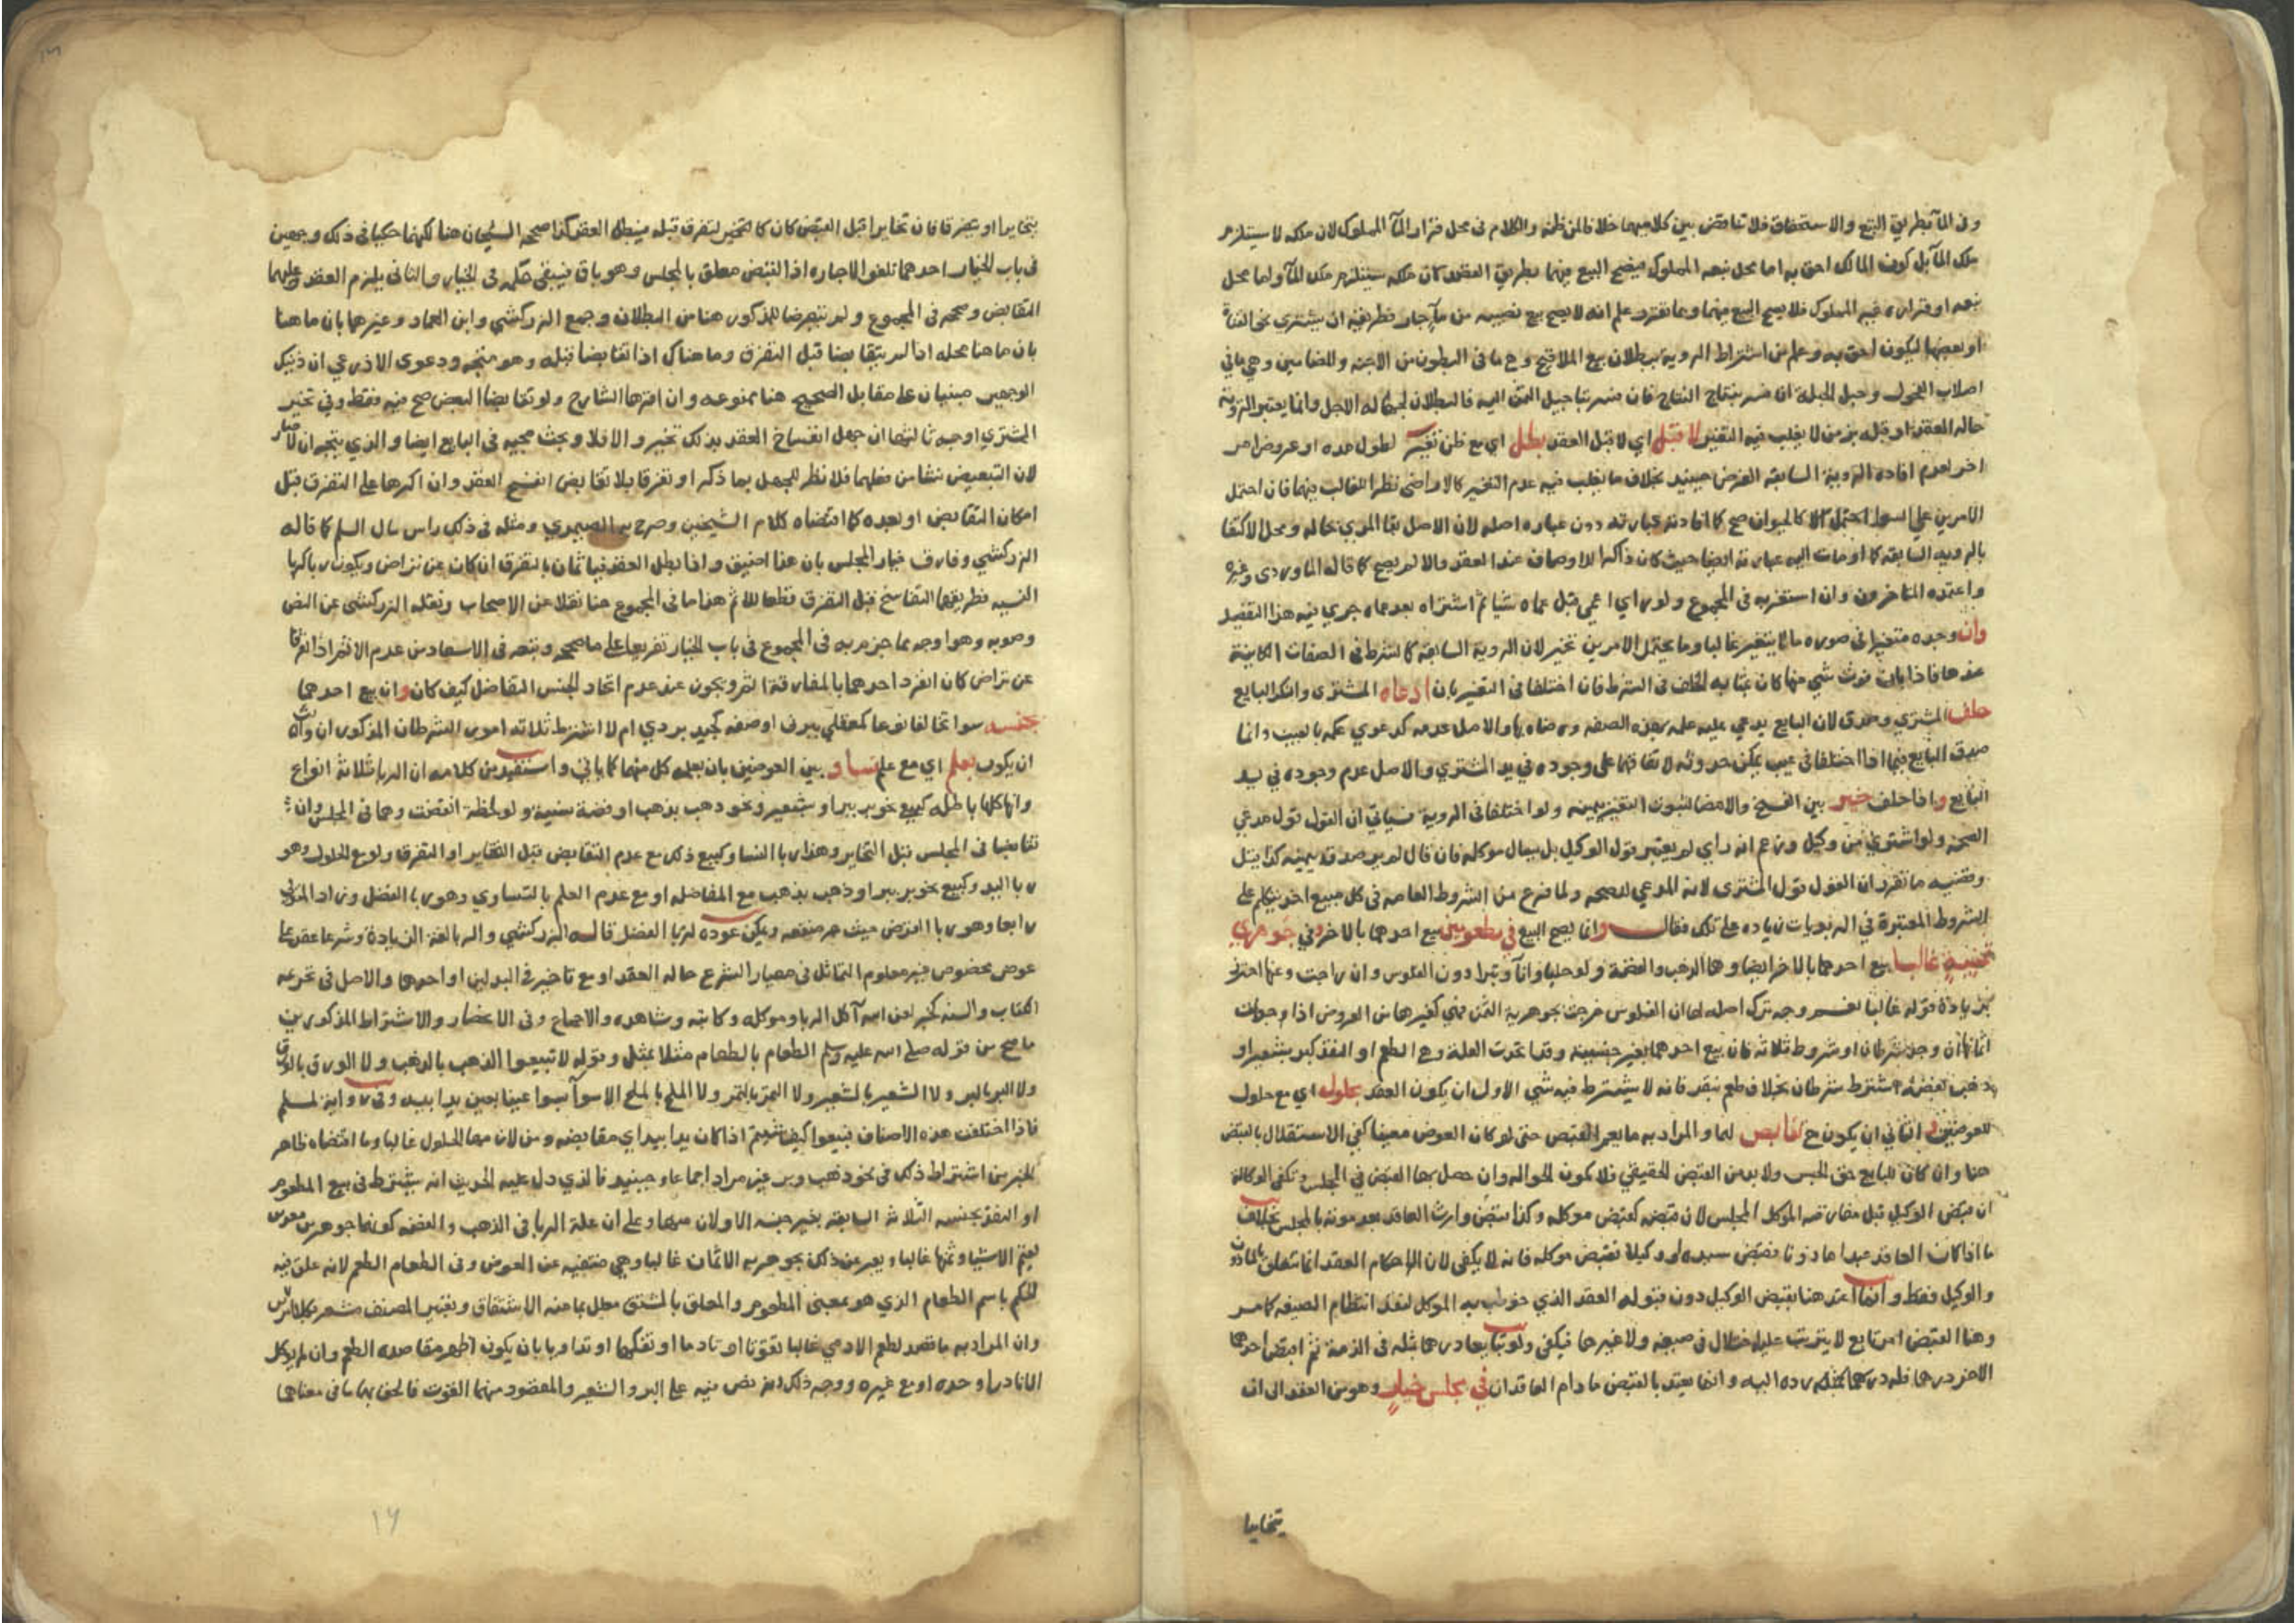 وفي الماء بطريق التبع والاستحقاق فلا تناقض بين كلاميهما خلافا لمن ظنه والكلام في محل قرار الماء المملوك لان ملكه لا يستلزم
ملك الماء بل كون المالك احق به اما محل نبعه المملوك فيصح البيع فيهما بطريق العقد كان ملكه يستلزم ملك الماء واما محل
نبعه او قراره غير المملوك فلا يصح البيع فيهما وبما تقرر علم انه لا يصح بيع نصيبه من ماء جار فطريقه ان يشتري نحو القناة
او بعضها ليكون احق به وعلم من اشتراط الروية بطلان بيع الملاقيح وهي ما في البطون من الاجنه والمضامين وهي ما في
اصلاب الفحول وحبل الحبلة ان فسر بنتاج النتاج فان فسر بتاجيل الثمن اليه فالبطلان لجهالة الاجل وانما يعتبر الروية
حاله العقد او قبله بزمن لا يغلب فيه التغير لا قبل اي لا قبل العقد بطل اي مع ظن تغير لطول مده او عروض امر
اخر لعدم افاده الروية السابقه الغرض حينيذ بخلاف ما يغلب فيه عدم التغير كالاراضي نظرا للغالب فيهما فان احتمل
الامرين على السوا كالحيوان صح كما افادته عبارته دون عباره اصله لان الاصل بقا المري بحاله ومحل الاكتفا
بالرويه السابقه كما اومات اليه عبارته ايضا حيث كان ذاكرا للاوصاف عند العقد والا لم يصح كما قاله الماوردي وغيره
واعتمده المتاخرون وان استغربه في المجموع ولو راي اعمى قبل عماه شيا ثم اشتراه بعد عماه جري فيه هذا التفصيل
وان وجده متغيرا في صوره ما لا يتغير غالبا وما يحتمل الامرين تخير لان الروية السابقة كالشرط في الصفات الكاينة
عندها فاذا بان فوت شي منها كان بمثابه الخلف في الشرط فان اختلفا في التغير بان ادعاه المشتري وانكر البايع
حلف المشتري وصدق لان البايع يدعي عليه علمه بهذه الصفه ورضاه بها والاصل عدمه كدعوي علمه بالعيب وانما
صدق البايع فيما اذا اختلفا في عيب يمكن حدوثه لاتفاقهما على وجوده في يد المشتري والاصل عدم وجوده في يد
البايع واذا حلف خير بين الفسخ والامضا لثبوت التغير بيمينه ولو اختلفا في الروية فسياتي ان القول قول مدعي
الصحه ولو اشتري من وكيل وزعم انه راي لم يعتبر قول الوكيل بل يسال موكله فان قال لم ير صدق بيمينه كذا قيل
وقضيه ما تقرر ان القول قول المشتري لانه المدعي للصحه ولما فرغ من الشروط العامه في كل مبيع اخذ يتكلم على
الشروط المعتبرة في الربويات زياده على تلك فقال وانما يصح البيع في مطعومين بيع احدهما بالاخر وفي جوهري
ثمنية غالبا بيع احدهما بالاخر ايضا وهما الذهب والفضة ولو حليا وانا وتبرا دون الفلوس وان راجت وعنها احترز
بزيادة قوله غالبا نعم وجه ترك اصله لها ان الفلوس خرجت بجوهرية الثمن فهي كغيرها من العروض اذا وجدت
اثمانا ان وجد شرطان او شروط ثلاثه فان بيع احدهما بغير جنسيه وقد اتحدت العلة وهي الطعم او النقد كبر بشعير او
ذهب بفضة اشترط شرطان بخلاف طعم بنقد فانه لا يشترط فيه شي الاول ان يكون العقد بحلول اي مع حلول
للعوضين والثاني ان يكون مع تقابض لهما والمراد به ما يعم القبض حتى لو كان العوض معينا كفي الاستقلال بالقبض
هنا وان كان للبايع حق الحبس ولا بد من القبض الحقيقي فلا يكون الحواله وان حصل بها القبض في المجلس وتكفي الوكالة
ان قبض الوكيل قبل مفارقة الموكل المجلس لان قبضه كقبض موكله وكذا قبض وارث العاقد بعد موته بالمجلس بخلاف
ما اذا كان العاقد عبدا ماذونا فقبض سيده او وكيلا فقبض موكله فانه لا يكفي لان احكام العقد انما تتعلق بالماذون
والوكيل فقط وانما اعتد هنا بقبض الوكيل دون قبوله العقد الذي خوطب به الموكل لفقد انتظام الصيغه كامر
وهنا القبض امر تابع لا يترتب عليه اختلال في صيغه ولا غيرها فيكفي ولو تبايعا درهما بمثله في الذمة ثم اقبض احدهما
الاخر درهما فله رده اليه وانما يعتد بالقبض ما دام العاقدان في مجلس خيار وهو من العقد الى ان
يتخايرا
يتخايرا او يتفرقا فان تخايرا قبل القبض كان كالتخير لتفرق قبله فيبطل العقد كذا صححه الشيخان هنا لكنهما حكيا في ذلك وجهين
في باب الخيار احدهما تلغوا الاجازه اذ القبض معلق بالمجلس وهو باق فيبقى حكمه في الخيار والثاني يلزم العقد وعليهما
التقابض وصححه في المجموع ولم يتعرضا للمذكور هنا من البطلان وجمع الزركشي وابن العماد وغيرهما بان ما هنا
بان ما هنا محله اذا لم يتقابضا قبل التفرق وما هناك اذا تقابضا قبله وهو متجه ودعوى الاذرعي ان ذينك
الوجهين مبنيان على مقابل الصحيح هنا ممنوعه وان اقرها الشارح ولو تقابضا البعض صح فيه فقط وفي تخير
المشتري اوجه ثالثها ان جهل انفساخ العقد بذلك تخير والا فلا وبحث مجيه في البايع ايضا والذي يتجه ان لا خيار
لان التبعيض نشا من فعلهما فلا نظر للجهل بما ذكر او تفرقا بلا تقابض انفسخ العقد وان اكرها على التفرق قبل
امكان التقابض او بعده كما اقتضاه كلام الشيخين وصرح به الصيمري ومثله في ذلك راس مال السلم كما قاله
الزركشي وفارق خيار المجلس بان هذا اضيق واذا بطل العقد فياثمان بالتفرق ان كان عن تراض ويكون ربا كربا
النسيه فطريقهما التفاسخ قبل التفرق قطعا للاثم هذا ما في المجموع هنا نقلا عن الاصحاب ونقله الزركشي عن النص
وصوبه وهو اوجه مما جزم به في المجموع في باب الخيار تفريعا على ما صححه وتبعه في الاسعاد من عدم الاثم اذا تفرقا
عن تراض كان انفرد احدهما بالمفارقة اثم ويجوز عند عدم اتحاد الجنس التفاضل كيف كان وان بيع احدهما
بجنسه سوا تخالفا نوعا كمعقلي ببرني او صفه كجيد بردي ام لا اشترط ثلاثه امور الشرطان المذكوران والثالث
ان يكون بعلم اي مع علم تساو بين العوضين بان يعلمه كل منهما كما ياتي واستفيد من كلامه ان الربا ثلاثة انواع
وانها كلها باطله كبيع نحو بر ببر او شعير ونحو ذهب بذهب او فضة نسية ولو لحظة انقضت وهما في المجلس وان
تقابضا في المجلس قبل التخاير وهذا ربا النسا وكبيع ذلك مع عدم التقابض قبل التخاير او التفرق ولو مع الحلول وهو
ربا اليد وكبيع نحو بر ببر او ذهب بذهب مع المفاضله او مع عدم العلم بالتساوي وهو ربا الفضل وزاد المتولي
رابعا وهو ربا القرض حيث جر منفعه ويمكن عوده لربا الفضل قاله الزركشي والربا لغة الزيادة وشرعا عقد على
عوض مخصوص غير معلوم التماثل في معيار الشرع حاله العقد او مع تاخير في البدلين او احدهما والاصل في تحريمه
الكتاب والسنه كخبر لعن الله آكل الربا وموكله وكاتبه وشاهده والاجماع وفي الاعتبار والاشتراط المذكورين
ما صح من قوله صلى الله عليه وسلم الطعام بالطعام مثلا بمثل وقوله لا تبيعوا الذهب بالذهب ولا الورق بالورق
ولا البر بالبر ولا الشعير بالشعير ولا التمر بالتمر ولا الملح بالملح الا سوآ بسوا عينا بعين يدا بيد وفي رواية لمسلم
فاذا اختلفت هذه الاصناف فبيعوا كيف شيتم اذا كان يدا بيد اي مقابضه ومن لازمها الحلول غالبا وما اقتضاه ظاهر
الخبر من اشتراط ذلك في نحو ذهب وبر غير مراد اجماعا وحينيذ فالذي دل عليه الحديث انه يشترط في بيع المطعوم
او النقد بجنسه الثلاثة السابقه بغير جنسه الاولان منهما وعلى ان علة الربا في الذهب والفضه كونهما جوهرين معدين
لقيم الاشيا وثمنها غالبا ويعبر عن ذلك بجوهريه الاثمان غالبا وهي منتفيه عن العروض وفي الطعام الطعم لانه علق فيه
الحكم باسم الطعام الذي هو بمعنى المطعوم والمعلق بالمشتق معلل بما منه الاشتقاق وتعبير المصنف مشعر بكلا الامرين
وان المراد به ما قصد لطعم الادمي غالبا تقوتا او تادما او تفكها او تداويا بان يكون اظهر مقاصده الطعم وان لم يوكل
الا نادرا وحده او مع غيره ووجه ذلك انه نص فيه على البر والشعير والمقصود منهما القوت فالحق بهما ما في معناهما
١٦